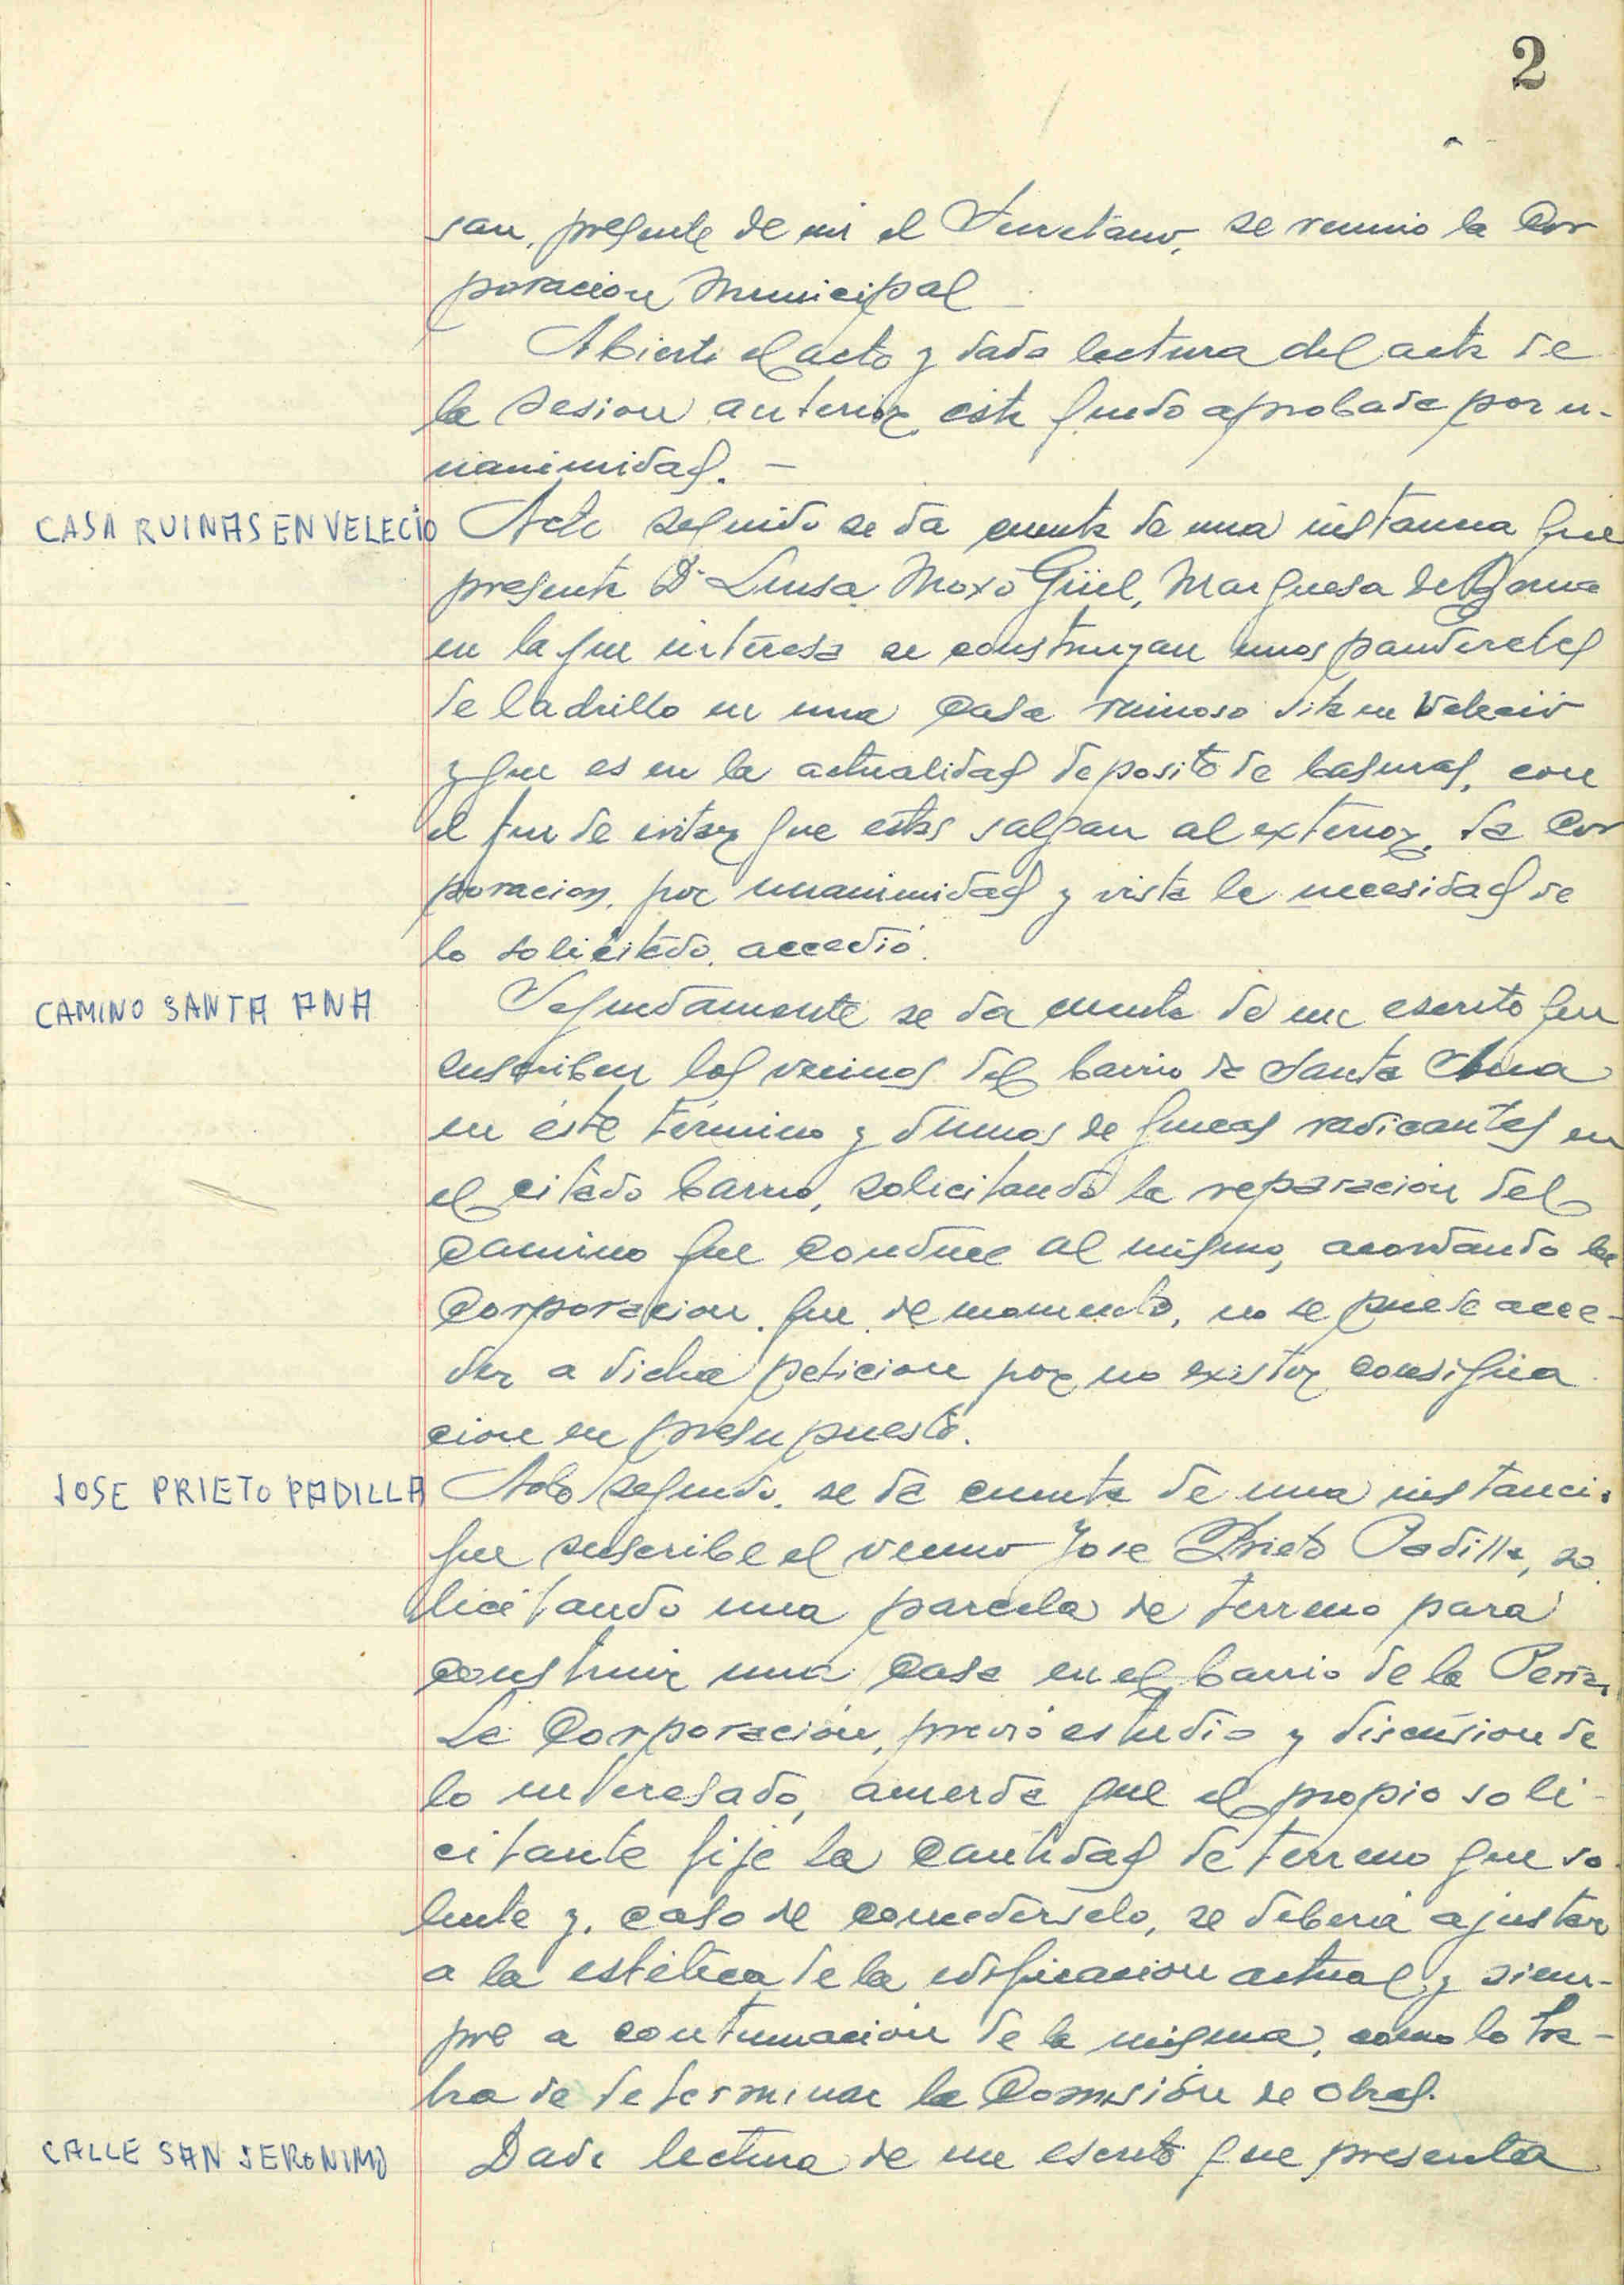 2
san, presente de mi el Secretario, se reunio la Cor
poracion Municipal
Abierto el acto y dada lectura del acta de
la sesion anterior esta quedo aprobada por u-
nanimidad. -
CASA RUINAS EN VELECIO
Acto seguido se da cuenta de una instancia que
presenta Dª Luisa Moxó Güel, Marquesa de
en la que interesa se construyan unos panderetes
de ladrillo en una casa ruinosa sita en Veleció
y que es en la actualidad deposito de basuras, con
el fin de evitar que estas salgan al exterior, la Cor
poracion, por unanimidad y vista la necesidad de
lo solicitado, accedió.
CAMINO SANTA ANA
Seguidamente se da cuenta de un escrito que
suscriben los vecinos del barrio de Santa Ana
en éste término y dueños de fincas radicantes en
el citado barrio, solicitando la reparación del
camino que conduce al mismo, acordando la
Corporacion, que de momento, no se puede acce-
der a dicha peticion por no existir consigna
cion en presupuesto.
JOSE PRIETO PADILLA
Acto seguido, se da cuenta de una instancia
que suscribe el vecino Jose Prieto Padilla, so
licitando una parcela de terreno para
construir una casa en el barrio de la
La Corporación, previo estudio y discusion de
lo interesado, acuerda que el propio soli-
citante fije la cantidad de terreno que so
licite y, caso de concederselo, se deberia ajustar
a la estética de la edificacion actual y siem-
pre a continuación de la misma, como lo
de determinar la Comisión de Obras.
CALLE SAN JERONIMO
Dada lectura de un escrito que presenta